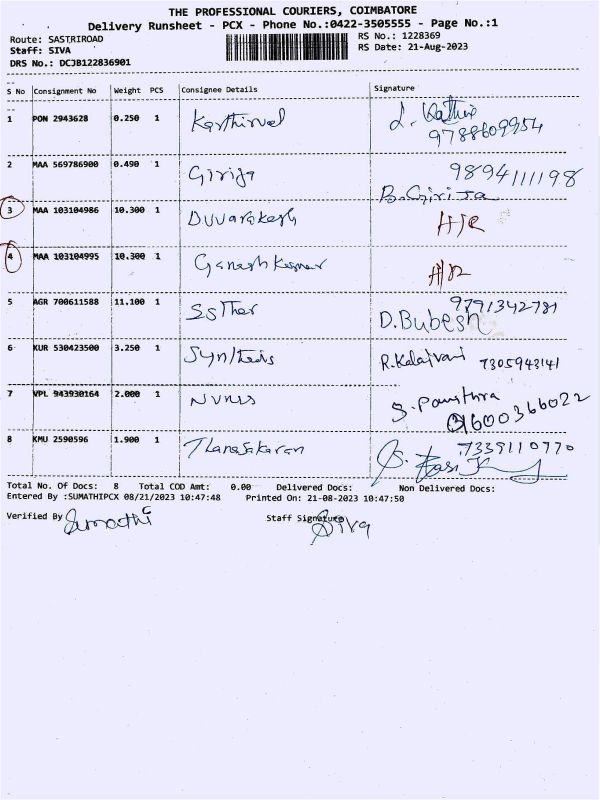 THE PROFESSIONAL COURIERS, COIMBATORE
Delivery Runsheet - PCX - Phone No.:0422-3505555 - Page No.:1
Route: SASTRIROAD RS No.: 1228369
Staff: SIVA RS Date: 21-Aug-2023
DRS No.: DCJB122836901
S No Consignment No Weight PCS Consignee Details Signature
1 PON 2943628 0.250 1 Karthirvel
9788609954
2 MAA 569786900 0.490 1 Girija 9894111198
B. Girija
3 MAA 103104986 10.300 1 Duvarakesh
4 MAA 103104995 10.300 1 Ganesh Kumar
5 AGR 700611588 11.100 1 9791342781
D. Bubesh
6 KUR 530423500 3.250 1 R. Kalaivani 7305943141
7 VPL 943930164 2.000 1 S. Pavithra
01600366022
8 KMU 2590596 1.900 1 7339110770
Total No. Of Docs: 8 Total COD Amt: 0.00 Delivered Docs: Non Delivered Docs:
Entered By :SUMATHIPCX 08/21/2023 10:47:48 Printed On: 21-08-2023 10:47:50
Verified By Sumathi Staff Signature Siva